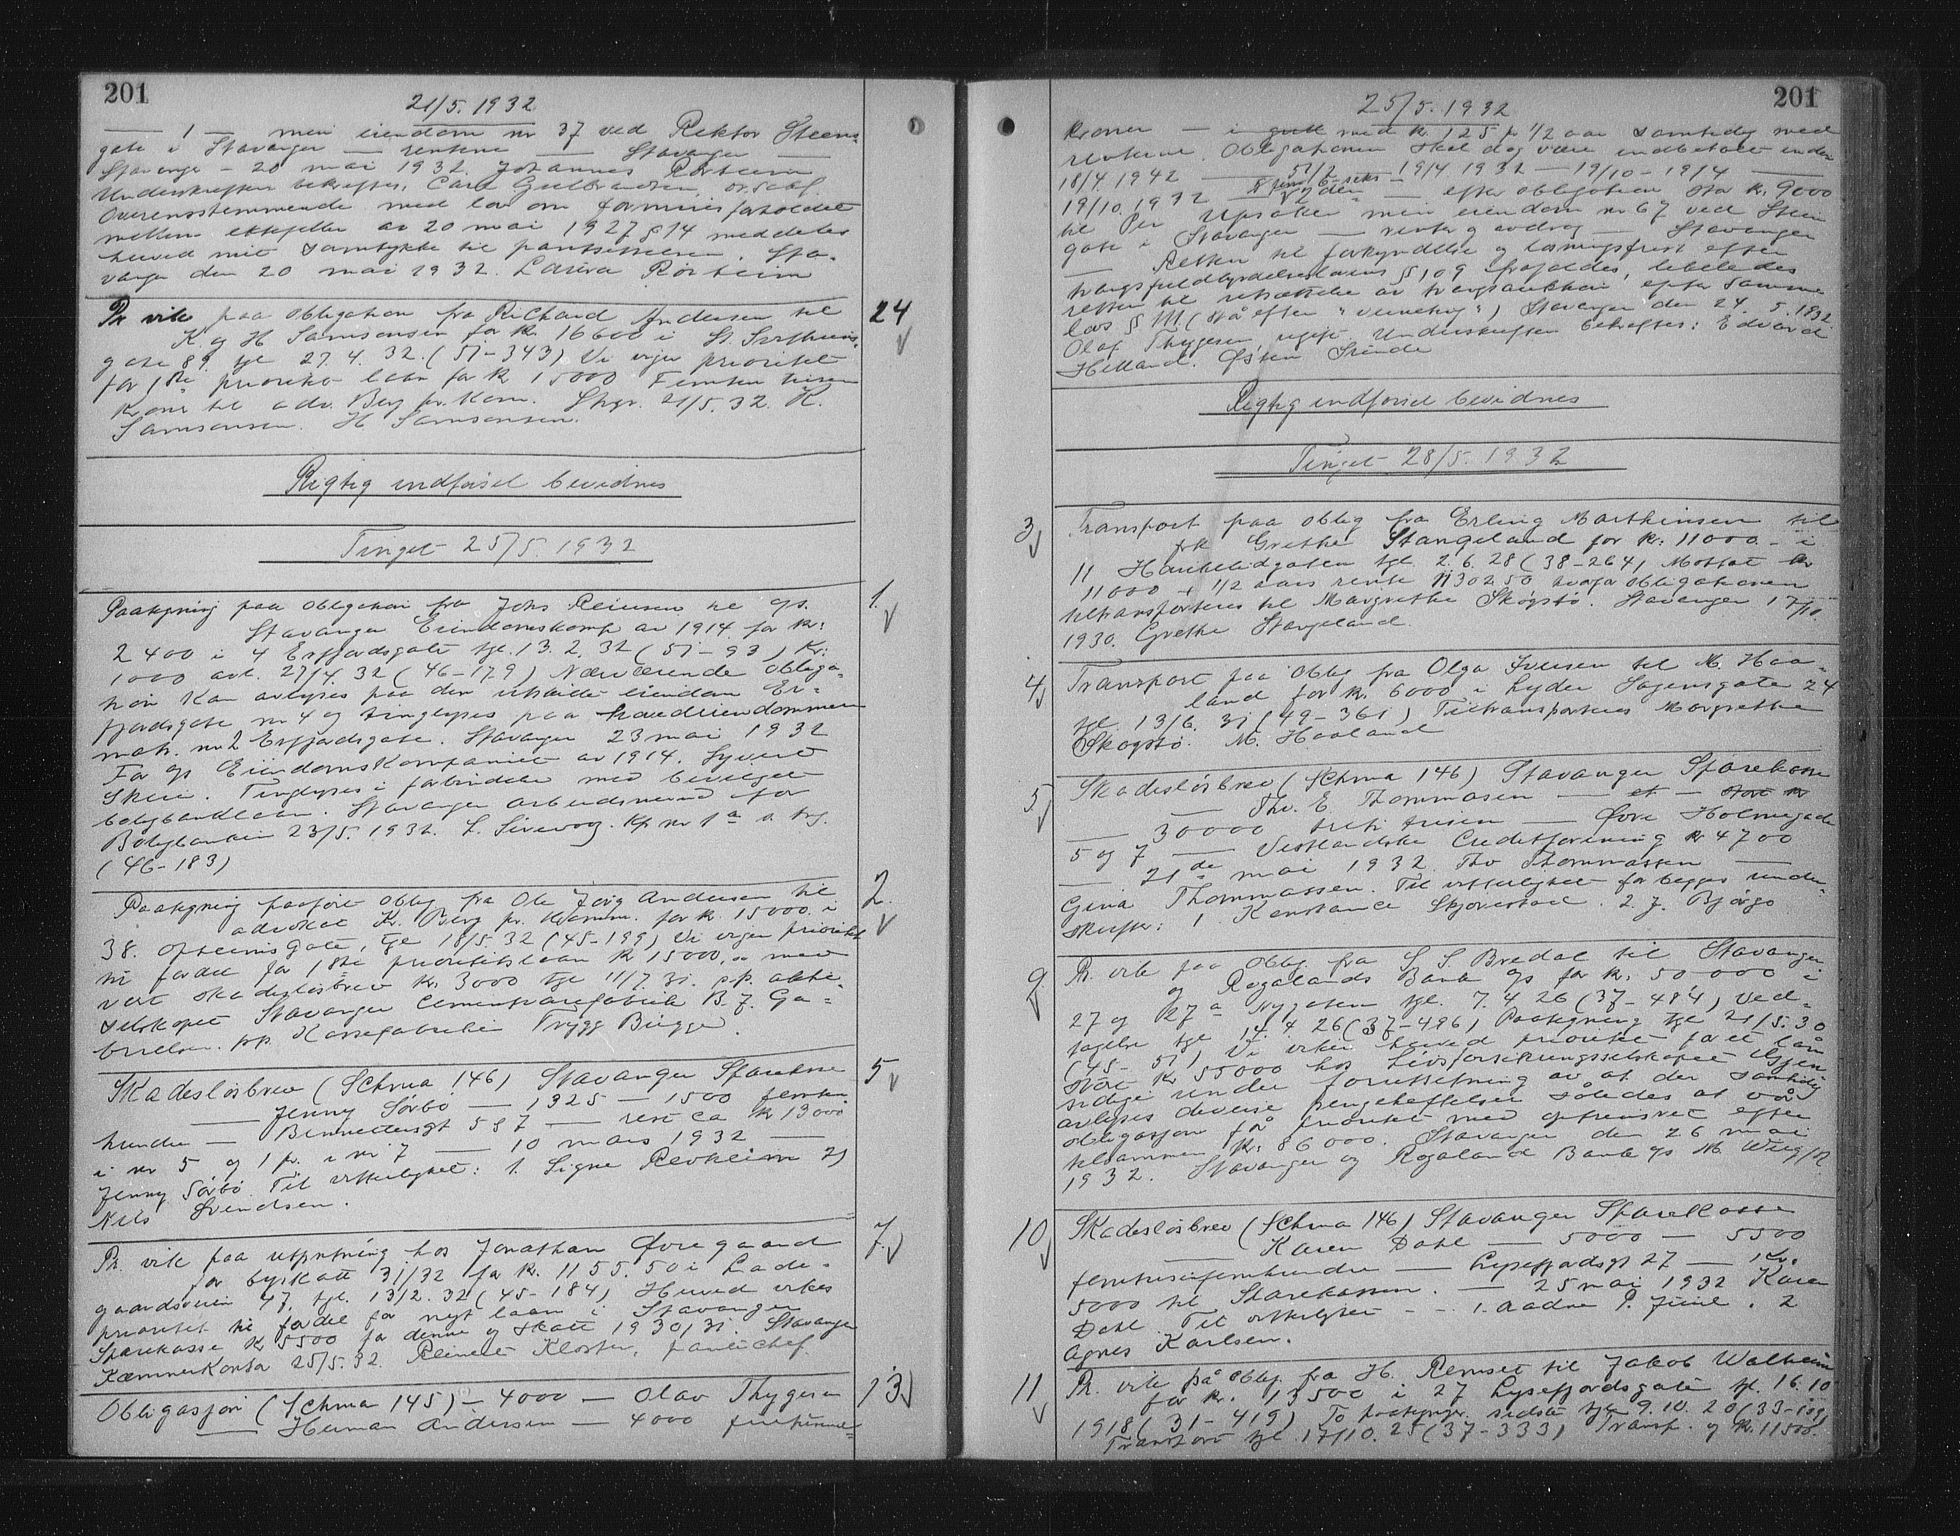 201
21/5. 1932
— 1 — min eiendom nr 37 ved Rektor Steens
gate i Stavanger — rentene — Stavanger —
Stavanger - 20 mai 1932. Johannes Rørheim
Underskriften bekreftes, Carl Gulbrandsen, o.r.sakf.
Overensstemmende med lov om formuesforholdet
mellem ektefeller av 20 mai 1927 § 14 meddeles
herved mit samtykke til pantsettelsen. Sta-
vanger den 20 mai 1932. Laura Rørheim
24
Pr. vik. paa obligation fra Richard Andersen til
K. og H Samsonsen for kr. 16600 i St. Svithuns
gate 89 tgl 27. 4. 32. (51-343) Vi viger prioritet
for 1ste prioritets laan for kr 15000 Femten tusen
kroner til adv. Berg pr. Kom. Stvgr. 21/5. 32. K.
Samsonsen. H Samsonsen.
Rigtig indførsel bevidnes
Tinget 25/5. 1932
1.
Paategning paa obligation fra Johs Reiersen til A/S.
Stavanger Eiendomskomp av 1914 for kr:
2400 i 4 Erfjordsgate tgl. 13. 2. 32 (51-93) Kr:
1000 avl. 27/4. 32 (46-179) Nærværende obliga-
tion kan avlyses paa den utskilte eiendom Er-
fjordsgate nr 4 og tinglyses paa hovedeiendommen
matr. nr 2 Erfjordsgate. Stavanger 23 mai 1932
For A/S Eiendomskompaniet av 1914. Syvert
Skeie. Tinglyses i forbindelse med bevilget
boligbanklaan. Stavanger arbeidsnevnd for
Boligbanken 23/5. 1932. L. Sivevog. Kp nr 1a s. trg.
(46-183)
2.
Paategning paaført oblig fra Ole Jørg Andersen til
advokat K. Berg pr. Komm. for kr. 15000. i
38. Opheimsgate, tgl 18/5. 32 (45-199) Vi viger prioritet
til fordel for 1ste prioritetslaan kr 15000,- med
vort skadesløsbrev kr. 3000 tgl 11/7. 31. p.p. aktie-
selskapet Stavanger Cementvarefabrik B. J. Ga-
brielsen. pp. Kassefabrikken Trygg Brügger.
5
Skadesløsbrev (Schma 146) Stavanger Sparekasse
— Jenny Sørbø — 1325 — 1500 femten
hundre — Bennettersgt 5 & 7 — rest ca kr 13000
i nr 5 og 1 pr. i nr 7 — 10 mars 1932 —
Jenny Sørbø. Til vitterlighet: 1. Signe Revheim 2)
Nils Svendsen.
7.
Pr. vik paa utpantning hos Jonathan Øvregaard
for byskatt 31/32 for kr. 1155. 50 i Lade-
gaardsveien 47, tgl. 13/2. 32 (45-184) Herved vikes
prioritet til fordel for nytt laan i Stavanger
Sparekasse kr 5500 for denne og skatt 1930/31. Stavanger
Kæmnerkontor 25/5. 32. Reinert Kloster, pantechef.
13
Obligasjon (Schma 145) - 4000 — Olav Thygesen
— Herman Andersen — 4000 firetusen-
201
25/5. 1932
kroner — i gull med kr 125 pr 1/2 aar samtidig med
rentene. Obligationen skal dog være indbetalt inden
18/4. 1942 — 5 1/2 — 19/4 1932 — 19/10 - 19/4 —
19/10. 1932 — — efter obligation stor kr. 9000
til Per Upsaker min eiendom nr 67 ved Steen
gate i Stavanger — renter og avdrag — Stavanger
— Retten til forkyndelse og løsningsfrist efter
tvangsfuldbyrdelseslovens § 109 frafaldes, likeledes
retten til utsættelse av tvangsauktion efter samme
lovs § 111 (stå efter "vurnekrig") Stavanger den 24. 5. 1932.
Olaf Thygesen, ugift. Underskriften bekreftes: Edvard
Helland. Østen Svinde
Rigtig indførsel bevidnes
Tinget 28/5. 1932
3
Transport paa oblig fra Erling Marthinsen til
frk Grethe Stangeland for kr. 11000.- i
11 Haukelidgaten tgl. 2. 6. 28 (38-264) Mottat kr
11000 + 1/2 aars rente 11302.50 hvorfor obligationen
tiltransporteres til Margrethe Skogstø. Stavanger 17/10.
1930. Grethe Stangeland.
4
Transport paa oblig fra Olga Iversen til M. Haa-
land for kr. 6000 i Lyder Sagensgate 24
tgl. 13/6. 31 (49-361) Tiltransporteres Margrethe
Skogstø. M. Haaland
5
Skadesløsbrev (Schma 146) Stavanger Sparekasse
— Thv. E. Thommasen — et — stort kr
— 30000 tretti tusen — Øvre Holmegade
5 og 7 — Vestlandske Creditforening kr 4700
— 21de mai 1932 Thv Thommassen —
Gina Thommassen. Til vitterlighet for begges under-
skrifter: 1. Konstance Skjørestad. 2. J. Bjørgo
9
Pr. vik paa oblig. fra S. S Bredal til Stavanger
og Rogalands Bank A/S for kr. 50 000 i
27 og 27a Nygaten tgl. 7. 4 26 (37-484) Ved-
tagelse tgl 14. 4 26 (37-496) Paategning tgl 21/5. 30
(45-51) Vi viker herved prioritet for et lån
stort kr 55000 hos Livsforsikringsselskapet Gjen
sidige under forutsetning av at der samtidig
avlyses diverse pengeheftelser således at vår
obligasjon får prioritet med oprensket efter
tilsammen kr. 86 000. Stavanger den 26 mai
1932. Stavanger og Rogalands Bank A/S M. Wiig/R
10
Skadesløsbrev (Schma 146) Stavanger Sparekasse
— Karen Dahl — 5000 — 5500
femtusenfemhundre — Lysefjordsgt 27 — 1. pr.
5000 til Sparekassen. — 25 mai 1932 Karen
Dahl. Til vitterlighet - - 1. Aadne P. Juul. 2
Agnes Karlsen.
11
Pr. vik på oblig. fra H. Remset til Jakob Walheim
for kr. 13500 i 27 Lysefjordsgate tgl. 16. 10
1918 (31-419) To paategngr. sidste tgl 9. 10. 20 (33-109)
Transport tgl. 17/10. 25 (37-333) Transp. og kr. 11500.